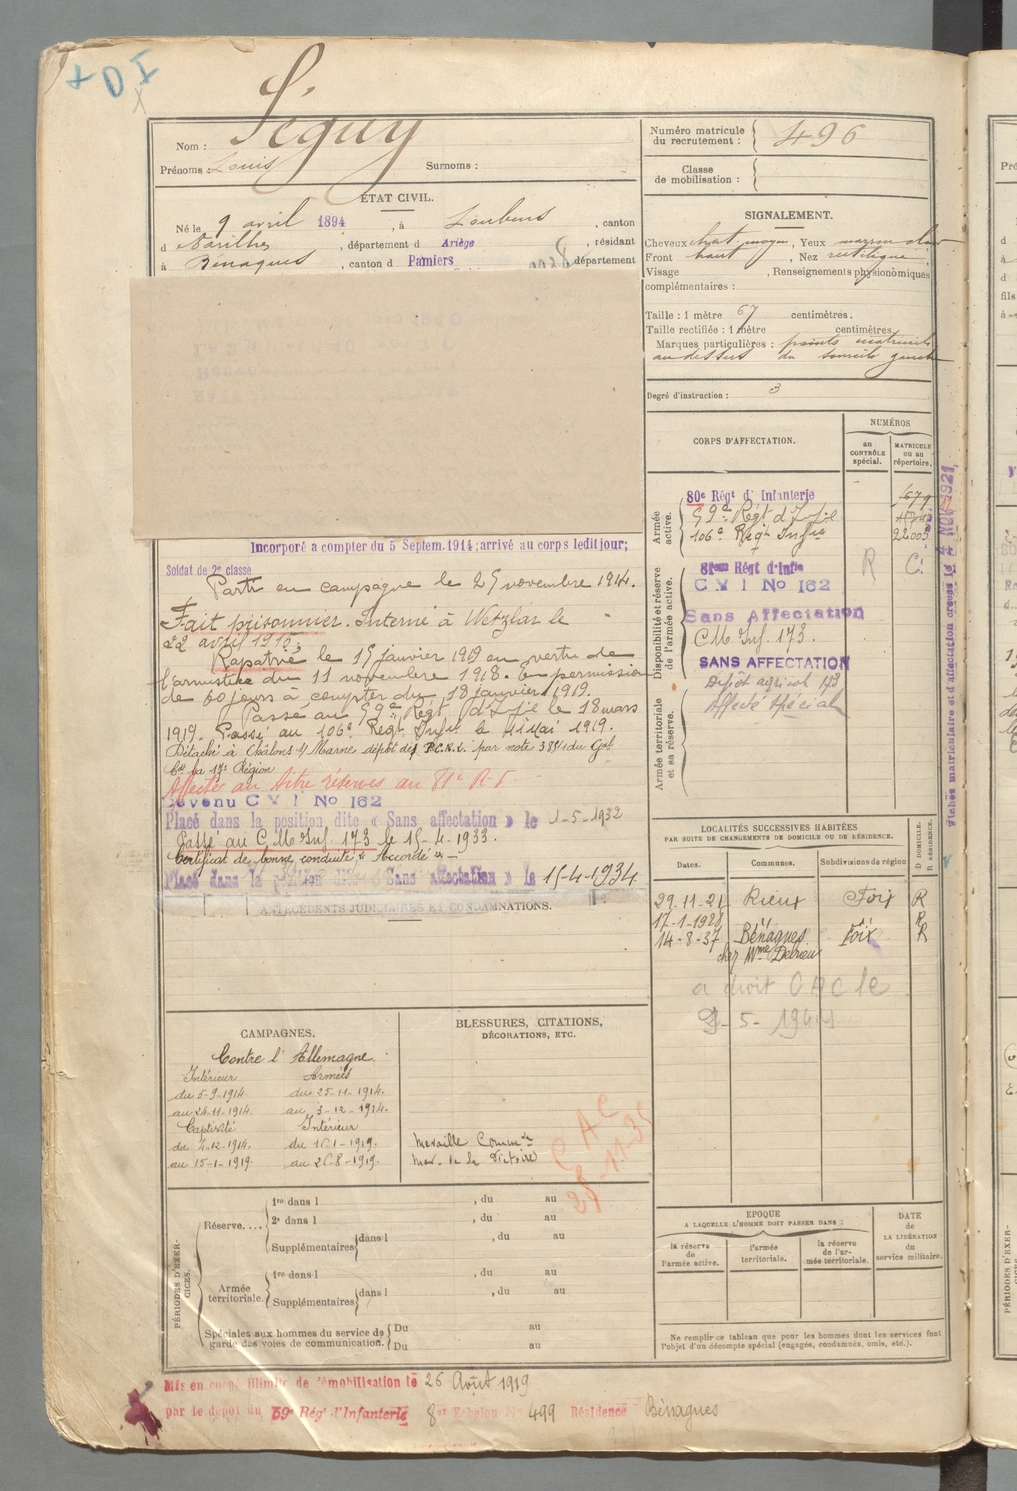 Nom : Séguy
Prénoms : Louis Surnoms :
ÉTAT CIVIL.
Né le 9 avril 1894, à Loubens, canton
d Varilhes, département d Ariège, résidant
à Bénagues, canton d Pamiers département
Incorporé a compter du 5 Septem. 1914; arrivé au corps ledit jour;
Soldat de 2e classe
Parti en campagne le 25 novembre 1914.
Fait prisonnier. Interné à Wetzlar le
22 avril 1915;
Rapatrié le 15 janvier 1919 en vertu de
l'armistice du 11 novembre 1918. En permission
de 60 jours à compter du 18 janvier 1919.
Passé au 59e Régt d'Ifie le 18 mars
1919. Passé au 106e Régt Infie le 4 Mai 1919.
Détaché à Châlons s/ Marne dépôt des P.G.R.X. par note 3854 du Gal
Ct la 17e Région
Affecté au titre réserves au 81e R.I.
Devenu C M I No 162
Placé dans la position dite « Sans affectation » le 1-5-1932
Passé au C.M.Inf. 173 le 15-4-1933.
Certificat de bonne conduite « Accordé »
Placé dans la position dite « Sans affectation » le 15-4-1934
ANTÉCÉDENTS JUDICIAIRES ET CONDAMNATIONS.
CAMPAGNES.
Contre l'Allemagne
Intérieur Armées
du 5-9-1914. du 25-11-1914.
au 24-11-1914. au 3-12-1914.
Captivité Intérieur
du 4-12-1914. du 16-1-1919.
au 15-1-1919. au 26-8-1919.
BLESSURES, CITATIONS,
DÉCORATIONS, ETC.
Médaille Commve
Med. de la Victoire
C A C
28-11-35
PÉRIODES D'EXERCICES.
Réserve.... 1re dans l , du au
2e dans l , du au
Supplémentaires dans l , du au
Armée territoriale. 1re dans l , du au
Supplémentaires dans l , du au
Spéciales aux hommes du service de garde des voies de communication. Du au
Du au
Mis en congé illimité de démobilisation le 26 Août 1919
par le dépôt du 59e Rég' d'Infanterie 8e Echelon No 499 Résidence Bénagues
Numéro matricule
du recrutement : 496
Classe
de mobilisation :
SIGNALEMENT.
Cheveux chat. moyen, Yeux marron clair
Front haut, Nez rectiligne,
Visage , Renseignements physionomiques
complémentaires :
Taille : 1 mètre 67 centimètres.
Taille rectifiée : 1 mètre centimètres.
Marques particulières :
au dessus du sourcil gauche
Degré d'instruction : 3
CORPS D'AFFECTATION.
NUMÉROS
au CONTRÔLE spécial.
MATRICULE ou au répertoire.
Armée active.
80e Régt d'Infanterie
59e Régt d'Ifie
106e Régt Infie 22003
Disponibilité et réserve de l'armée active.
81eme Régt d'Infie R C.
C M I No 162
Sans Affectation
C M Inf. 173.
SANS AFFECTATION
Dépôt agricol 173
Affecté Spécial
Armée territoriale et sa réserve.
LOCALITÉS SUCCESSIVES HABITÉES
PAR SUITE DE CHANGEMENTS DE DOMICILE OU DE RÉSIDENCE.
Dates. Communes. Subdivisions de région D DOMICILE. R RÉSIDENCE.
29.11-21 Rieux Foix R
17-1-1928 " " R
14-8-37 Bénagues Foix R
chez Mme
a droit C A C le
9-5-1941
EPOQUE
A LAQUELLE L'HOMME DOIT PASSER DANS :
la réserve de l'armée active.
l'armée territoriale.
la réserve de l'armée territoriale.
DATE
de
LA LIBÉRATION
du
service militaire.
Ne remplir ce tableau que pour les hommes dont les services font
l'objet d'un décompte spécial (engagés, condamnés, omis, etc.).